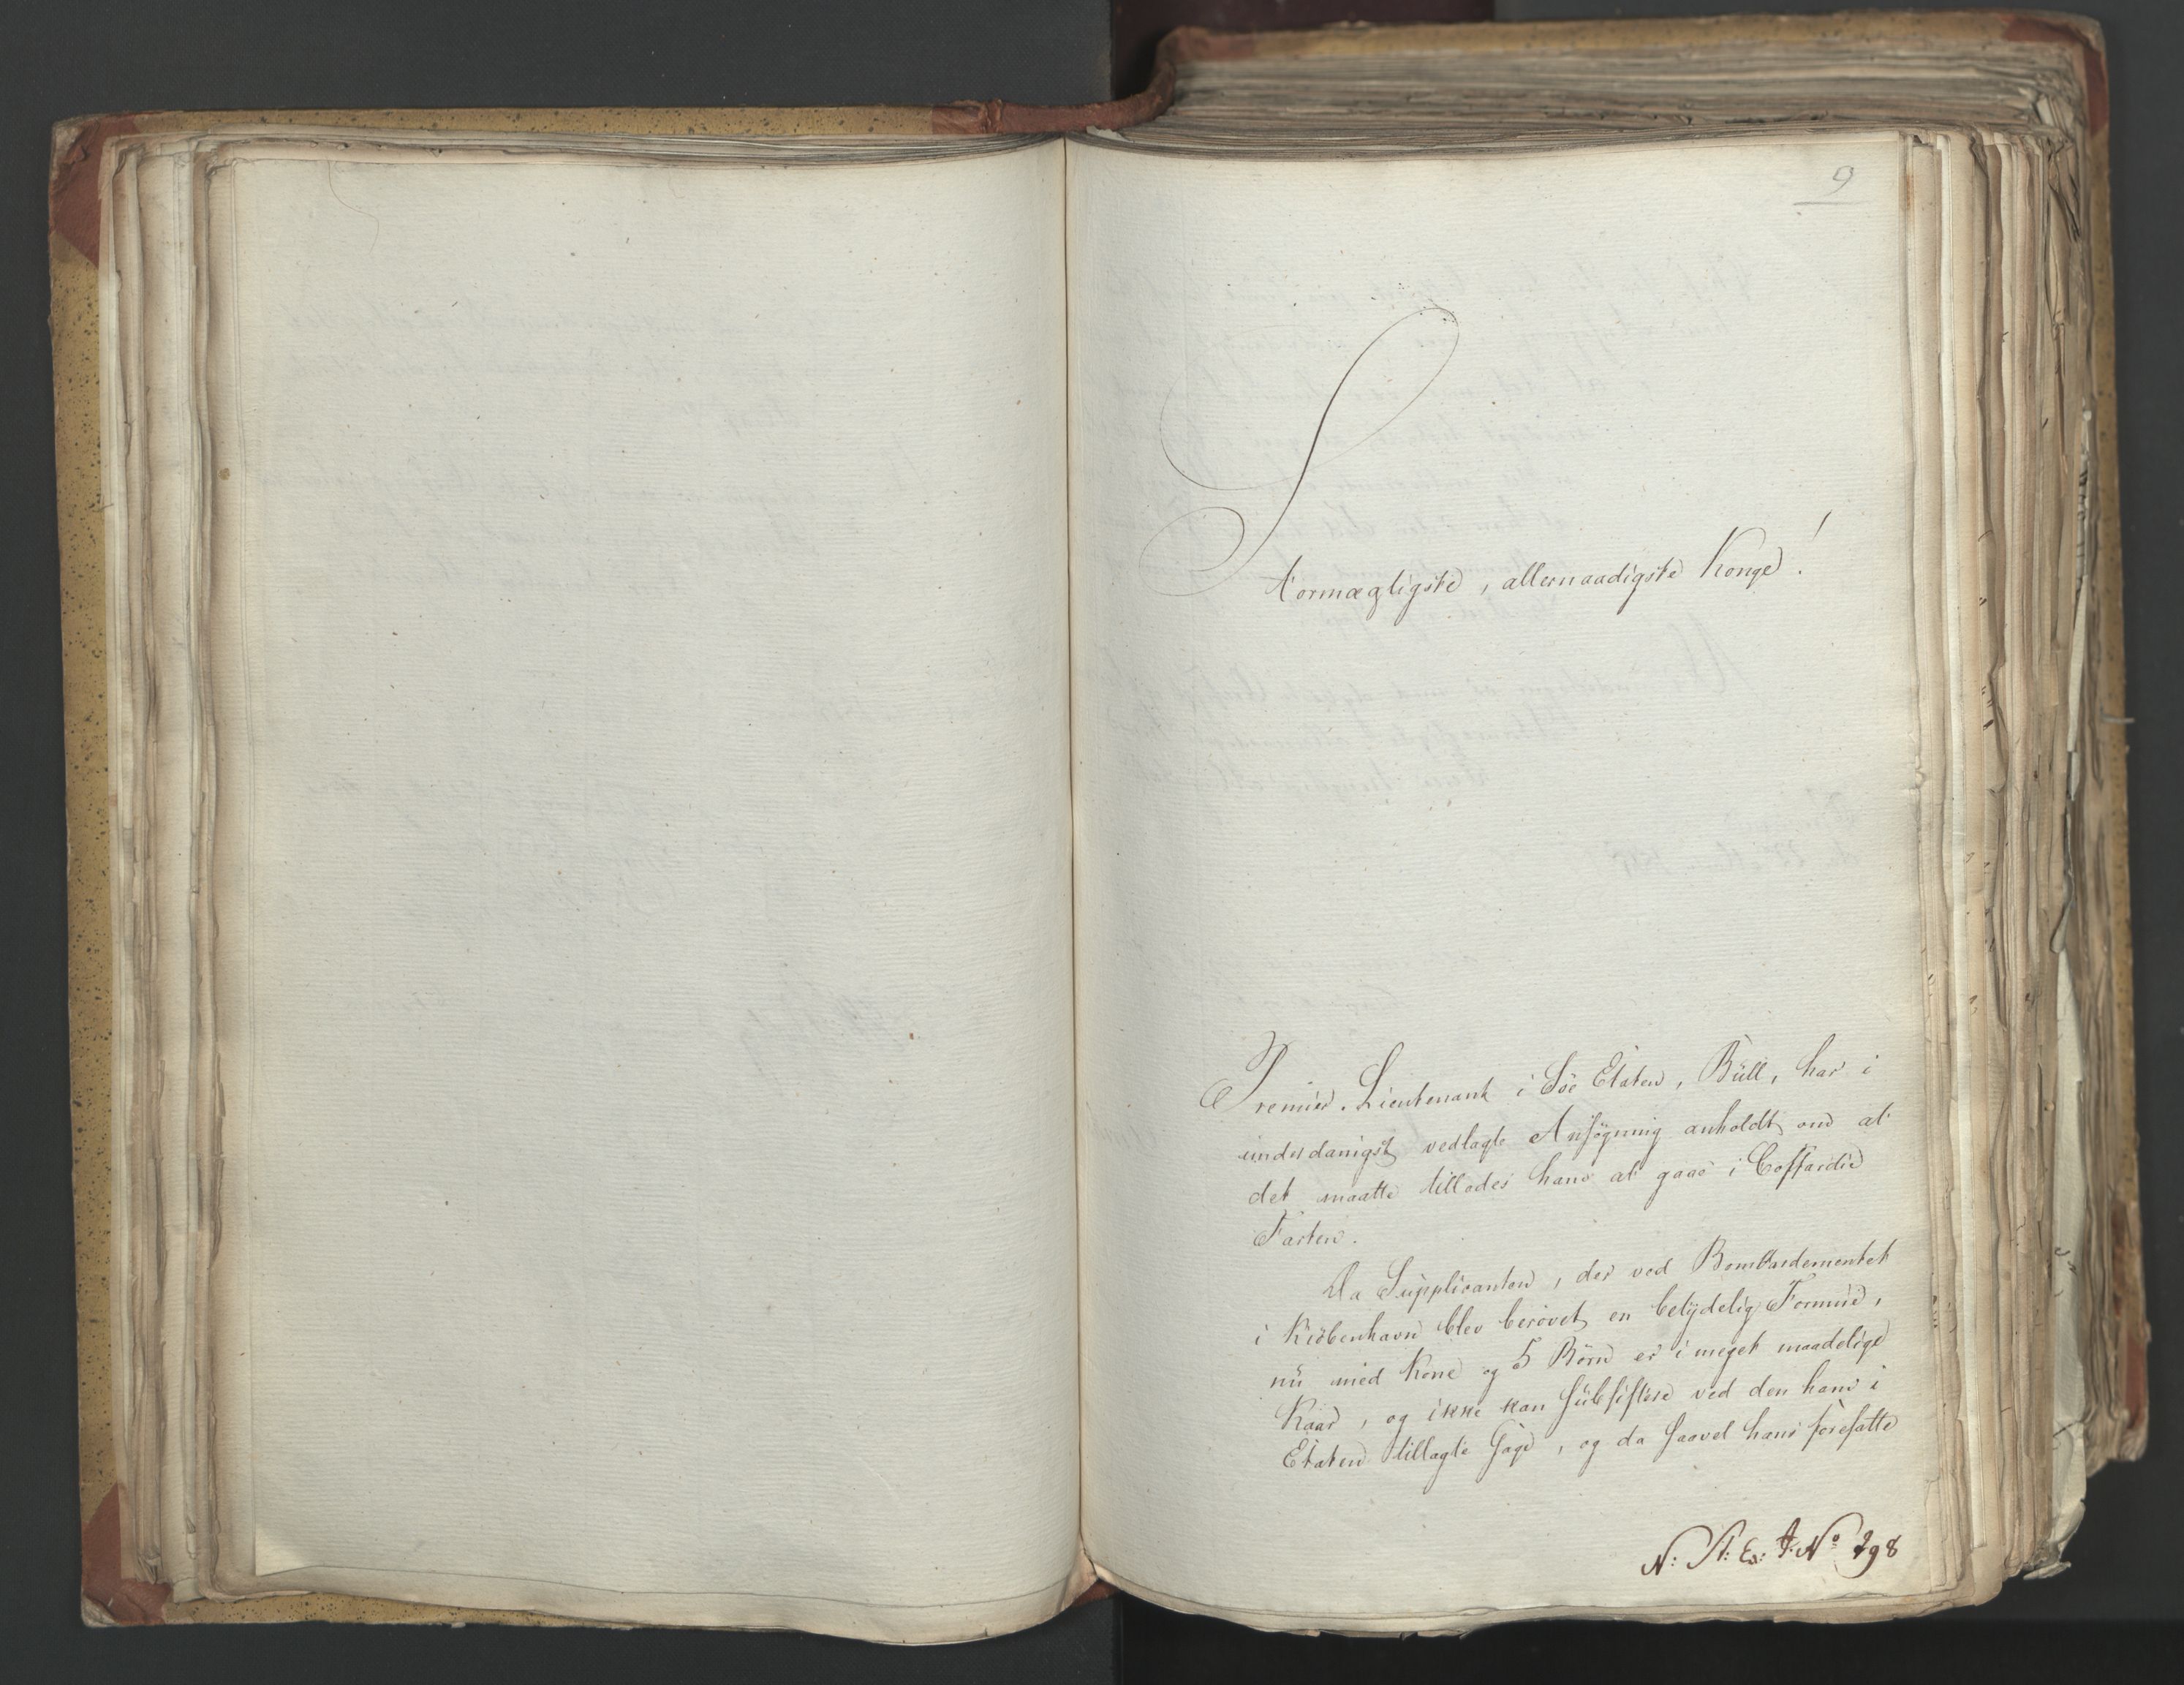 9
Stormægtigste, allernaadigste Konge!
Premier-Lieutenant i Søe Etaten, Bull, har i
underdanigst vedlagte Ansøgning anholdt om at
det maatte tillades ham at gaae i Coffardie
Farten.
Da Supplicanten, der ved Bombardementet
i Kiøbenhavn blev berøvet en betydelig Formue,
nu med Kone og 5 Børn er i meget maadelige
Kaar, og ikke kan subsistere ved den ham i
Etaten tillagte Gage, og da saavel hans foresatte
N: St: Ex: J: No 298